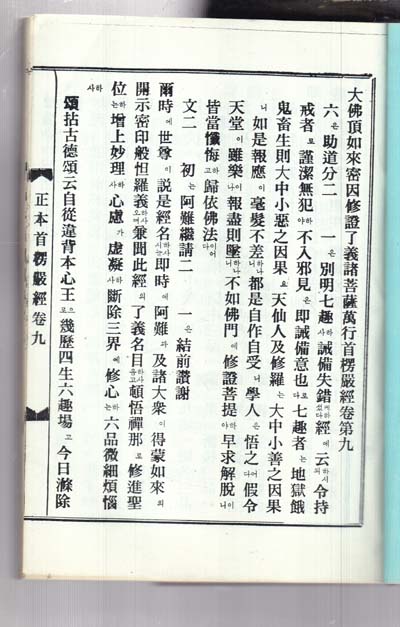 大佛頂如來密因修證了義諸菩薩萬行首楞嚴經卷第九
六은 助道分二 一은 別明七趣하사 誡備失錯 經에 云하사되 令持
戒者로 謹潔無犯하야 不入邪見은 即誡備意也다 七趣者는 地獄餓
鬼畜生則大中小惡之因果요 天仙人及修羅는 大中小善之因果
니 如是報應이 毫髮不差하나니 都是自作自受니 學人은 悟之어다 假令
天堂이 雖樂이나 報盡則墜하나니 不如佛門에 修證菩提하야 早求解脫이니
皆當懺悔하고 歸依佛法이어다
文二 初는 阿難繼請二 一은 結前讚謝
爾時에 世尊이 說是經名하사시는 即時에 阿難과 及諸大衆이 得蒙如來의
開示密印般怛羅義하사오며 兼聞此經의 了義名目하사옵고 頓悟禪那로 修進聖
位하는 增上妙理하사 心慮가 虛凝하사 斷除三界에 修心하는 六品微細煩惱하사
頌拈古德頌云自從違背本心王으로 幾歷四生六趣場고 今日滌除
正本首楞嚴經卷九